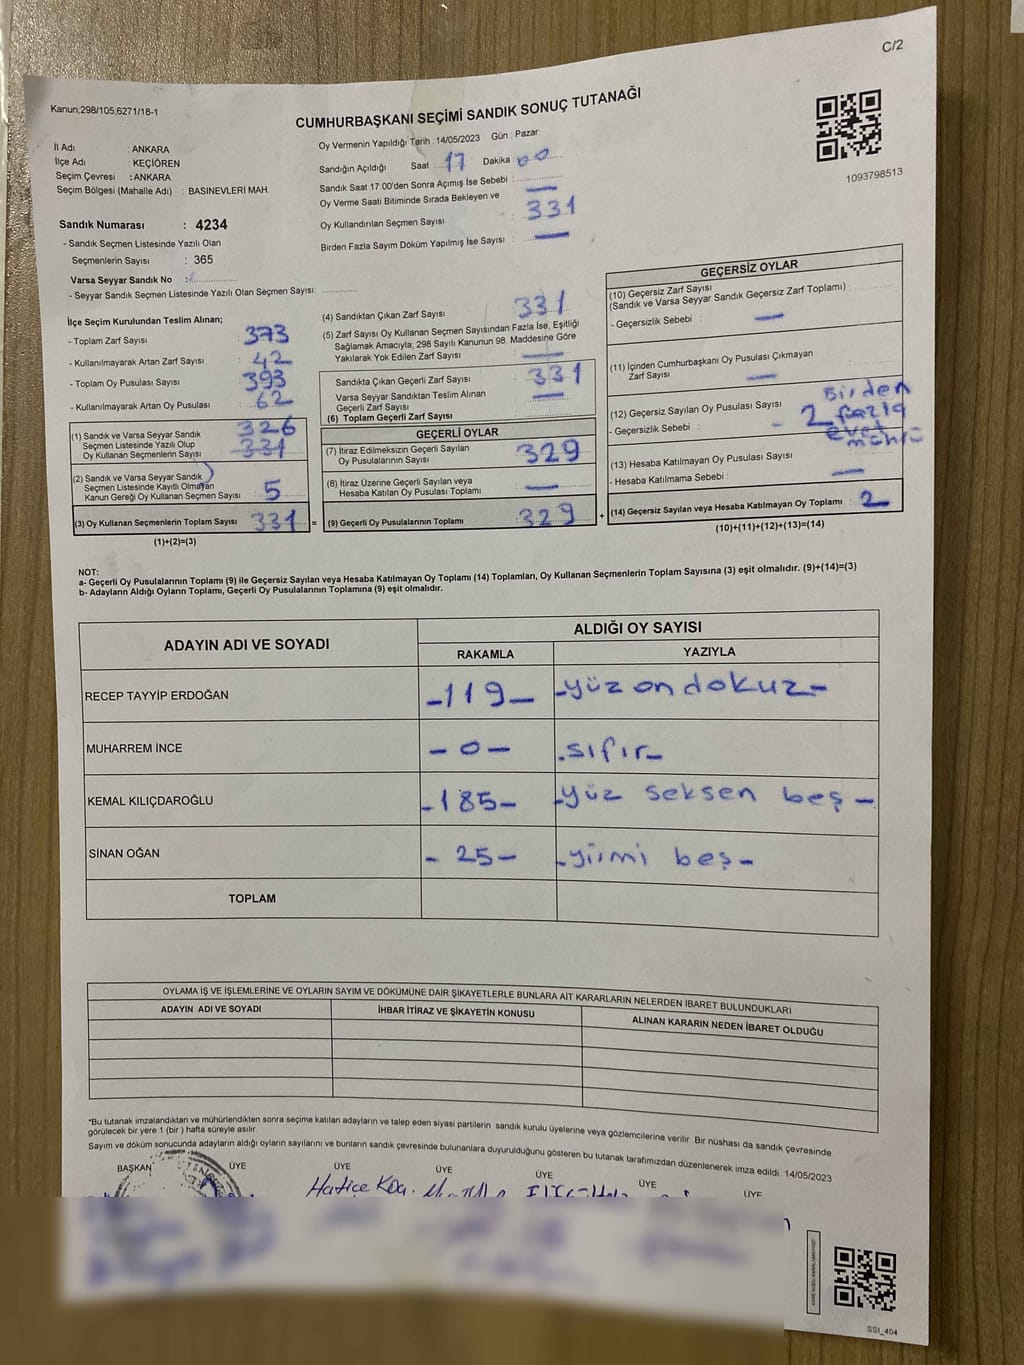 C/2
Kanun;298/105;6271/18-1
CUMHURBAŞKANI SEÇİMİ SANDIK SONUÇ TUTANAĞI
1093798513
İl Adı : ANKARA
İlçe Adı : KEÇİÖREN
Seçim Çevresi : ANKARA
Seçim Bölgesi (Mahalle Adı) : BASINEVLERİ MAH.
Sandık Numarası : 4234
- Sandık Seçmen Listesinde Yazılı Olan
Seçmenlerin Sayısı : 365
Varsa Seyyar Sandık No :
- Seyyar Sandık Seçmen Listesinde Yazılı Olan Seçmen Sayısı:
Oy Vermenin Yapıldığı Tarih : 14/05/2023 Gün : Pazar
Sandığın Açıldığı Saat : 17 Dakika : 00
Sandık Saat 17:00'den Sonra Açımış İse Sebebi : —
Oy Verme Saati Bitiminde Sırada Bekleyen ve
Oy Kullandırılan Seçmen Sayısı : 331
Birden Fazla Sayım Döküm Yapılmış İse Sayısı : —
İlçe Seçim Kurulundan Teslim Alınan;
- Toplam Zarf Sayısı : 373
- Kullanılmayarak Artan Zarf Sayısı : 42
- Toplam Oy Pusulası Sayısı : 393
- Kullanılmayarak Artan Oy Pusulası : 62
(1) Sandık ve Varsa Seyyar Sandık
Seçmen Listesinde Yazılı Olup
Oy Kullanan Seçmenlerin Sayısı 326 331
(2) Sandık ve Varsa Seyyar Sandık
Seçmen Listesinde Kayıtlı Olmayan
Kanun Gereği Oy Kullanan Seçmen Sayısı 5
(3) Oy Kullanan Seçmenlerin Toplam Sayısı 331 =
(1)+(2)=(3)
(4) Sandıktan Çıkan Zarf Sayısı : 331
(5) Zarf Sayısı Oy Kullanan Seçmen Sayısından Fazla İse, Eşitliği
Sağlamak Amacıyla; 298 Sayılı Kanunun 98. Maddesine Göre
Yakılarak Yok Edilen Zarf Sayısı : —
Sandıkta Çıkan Geçerli Zarf Sayısı : 331
Varsa Seyyar Sandıktan Teslim Alınan
Geçerli Zarf Sayısı : —
(6) Toplam Geçerli Zarf Sayısı :
GEÇERLİ OYLAR
(7) İtiraz Edilmeksizin Geçerli Sayılan
Oy Pusulalarının Sayısı : 329
(8) İtiraz Üzerine Geçerli Sayılan veya
Hesaba Katılan Oy Pusulası Toplamı : —
(9) Geçerli Oy Pusulalarının Toplamı : 329 +
GEÇERSİZ OYLAR
(10) Geçersiz Zarf Sayısı
(Sandık ve Varsa Seyyar Sandık Geçersiz Zarf Toplamı) :
- Geçersizlik Sebebi : —
(11) İçinden Cumhurbaşkanı Oy Pusulası Çıkmayan
Zarf Sayısı : —
(12) Geçersiz Sayılan Oy Pusulası Sayısı : 2 Birden
fazla
- Geçersizlik Sebebi : - evet
mührü
(13) Hesaba Katılmayan Oy Pusulası Sayısı :
- Hesaba Katılmama Sebebi : —
(14) Geçersiz Sayılan veya Hesaba Katılmayan Oy Toplamı : 2
(10)+(11)+(12)+(13)=(14)
NOT:
a- Geçerli Oy Pusulalarının Toplamı (9) ile Geçersiz Sayılan veya Hesaba Katılmayan Oy Toplamı (14) Toplamları, Oy Kullanan Seçmenlerin Toplam Sayısına (3) eşit olmalıdır. (9)+(14)=(3)
b- Adayların Aldığı Oyların Toplamı, Geçerli Oy Pusulalarının Toplamına (9) eşit olmalıdır.
ADAYIN ADI VE SOYADI ALDIĞI OY SAYISI
RAKAMLA YAZIYLA
RECEP TAYYİP ERDOĞAN -119- -yüz on dokuz-
MUHARREM İNCE -0- -sıfır-
KEMAL KILIÇDAROĞLU -185- -yüz seksen beş-
SİNAN OĞAN -25- -yirmi beş-
TOPLAM
OYLAMA İŞ VE İŞLEMLERİNE VE OYLARIN SAYIM VE DÖKÜMÜNE DAİR ŞİKAYETLERLE BUNLARA AİT KARARLARIN NELERDEN İBARET BULUNDUKLARI
ADAYIN ADI VE SOYADI İHBAR İTİRAZ VE ŞİKAYETİN KONUSU ALINAN KARARIN NEDEN İBARET OLDUĞU
*Bu tutanak imzalandıktan ve mühürlendikten sonra seçime katılan adayların ve talep eden siyasi partilerin sandık kurulu üyelerine veya gözlemcilerine verilir. Bir nüshası da sandık çevresinde
görülecek bir yere 1 (bir) hafta süreyle asılır.
Sayım ve döküm sonucunda adayların aldığı oyların sayılarını ve bunların sandık çevresinde bulunanlara duyurulduğunu gösteren bu tutanak tarafımızdan düzenlenerek imza edildi. 14/05/2023
BAŞKAN ÜYE ÜYE ÜYE ÜYE ÜYE ÜYE
Hatice
SSI_404